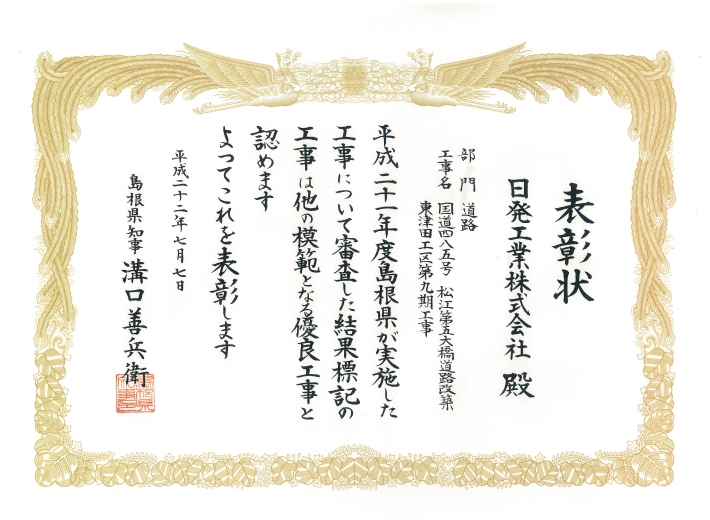 表彰状
日発工業株式会社 殿
部門 道路
工事名 国道四八五号 松江第五大橋道路改築
東津田工区第九期工事
平成二十一年度島根県が実施した
工事について審査した結果標記の
工事は他の模範となる優良工事と
認めます
よってこれを表彰します
平成二十二年七月七日
島根県知事 溝口善兵衛